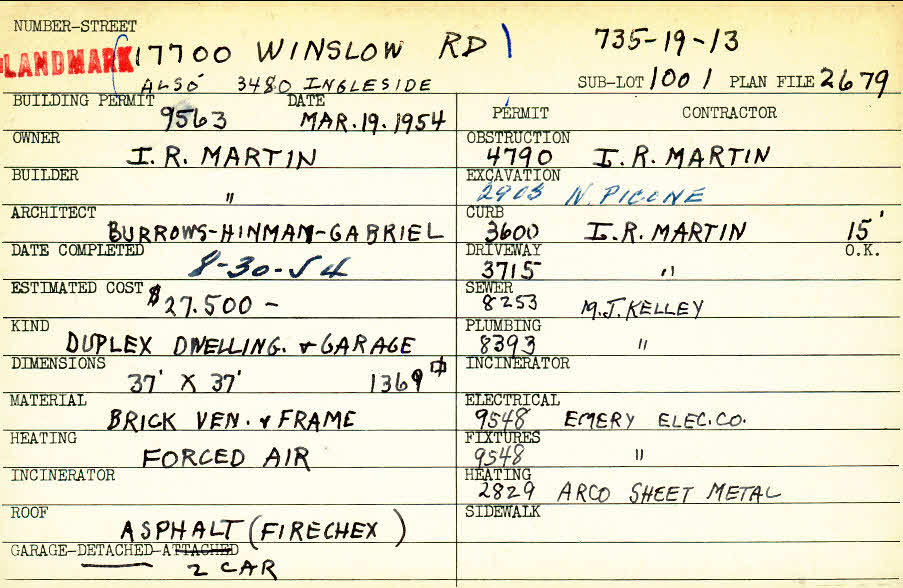 NUMBER-STREET
LANDMARK 17700 WINSLOW RD 735-19-13
ALSO 3480 INGLESIDE SUB-LOT 1001 PLAN FILE 2679
BUILDING PERMIT DATE PERMIT CONTRACTOR
9563 MAR.19.1954
OWNER OBSTRUCTION
I.R. MARTIN 4790 I.R. MARTIN
BUILDER EXCAVATION
" 2903 N. PICONE
ARCHITECT CURB
BURROWS-HINMAN-GABRIEL 3600 I.R. MARTIN 15'
DATE COMPLETED DRIVEWAY O.K.
8-30-54 3715 "
ESTIMATED COST SEWER
$27.500- 8253 M.J. KELLEY
KIND PLUMBING
DUPLEX DWELLING. & GARAGE 8393 "
DIMENSIONS INCINERATOR
37' X 37' 1369
MATERIAL ELECTRICAL
BRICK VEN. & FRAME 9548 EMERY ELEC.CO.
HEATING FIXTURES
FORCED AIR 9548 "
INCINERATOR HEATING
2829 ARCO SHEET METAL
ROOF SIDEWALK
ASPHALT (FIRECHEX)
GARAGE-DETACHED-ATTACHED
2 CAR